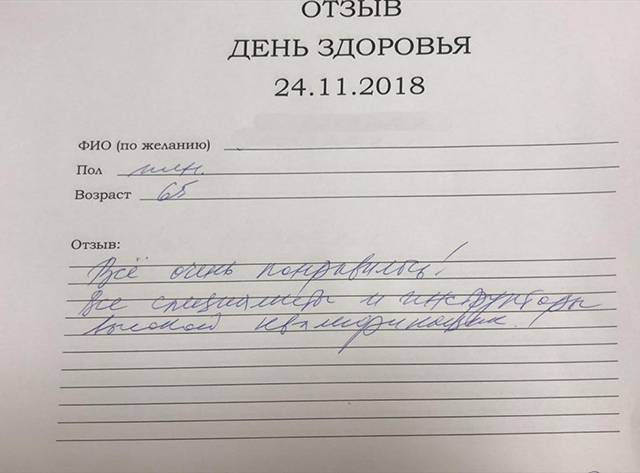 ОТЗЫВ
ДЕНЬ ЗДОРОВЬЯ
24.11.2018
ФИО (по желанию)
Пол жен.
Возраст 65
Отзыв:
Всё очень понравилось!
Все специалисты и инструкторы
высокой квалификации.